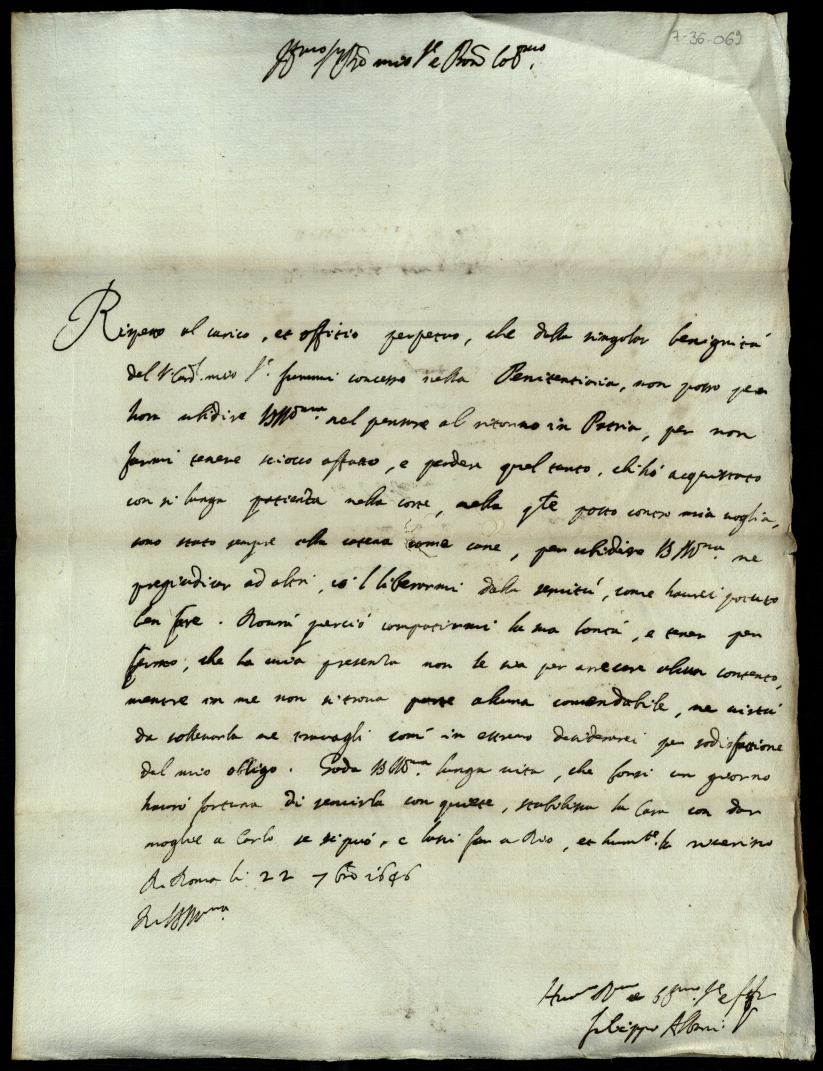 7-36-069
Ill.mo Sig.re mio Sig.re e Pron Col.mo
Rispetto al carico, et offitio perpetuo, che dalla singolar benignità
del S. Card. mio S.r fummi concesso nella Penitentiaria, non posso per
hora ubidire VS Ill.ma nel pensare al ritorno in Patria, per non
farmi tenere sciocco affatto, e perdere quel tanto, ch'hó acquistato
con si lunga patienza nella corte, nella q.le posto contro mia voglia,
sono stato sempre alla catena come cane, per ubidire VS Ill.ma ne
pregiudicar ad altri, co'l liberarmi dalla servitú, come haurei potuto
ben fare. Dourá perció compatirmi la sua bontá, e tener per
fermo, che la mia presenza non le sia per arrecare alcun contento,
mentre in me non si troua parte alcuna comendabile, ne virtú
da solleuarla ne trauagli com' in estremo desiderarei per sodisfattione
del mio obligo. Goda VS Ill.ma lunga vita, che forsi un giorno
hauró fortuna di seruirla con quiete, stabilisca la Casa con dar
moglie a Carlo se si puó, e lasci far a Dio, et humil.te la riuerisco
Di Roma li 22 7bre 1646
Di VS Ill.ma
Filippo Albani